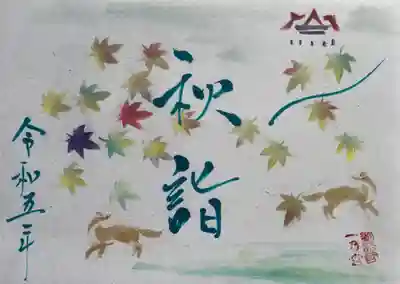 秋詣
令和五年